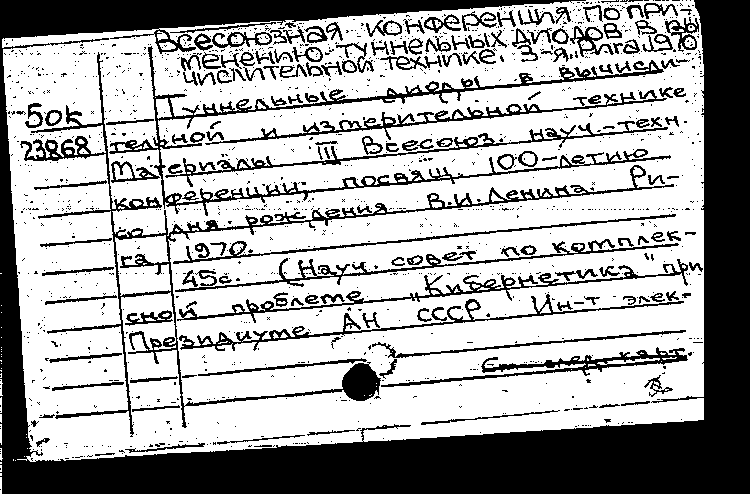 Всесоюзная конференция по при-
менению туннельных диодов в вы-
числительной технике. 3-я. Рига. 1970
Бок
23868
Туннельные диоды в вычисли-
тельной и измерительной технике
Материалы III Всесоюз. науч.-техн.
конференции, посвящ. 100-летию
со дня рождения В.И. Ленина. Ри-
га, 1970.
45с. (Науч. совет по комплек-
сной проблеме "Кибернетика" при
Президиуме АН СССР. Ин-т элек-
См. след. карт.